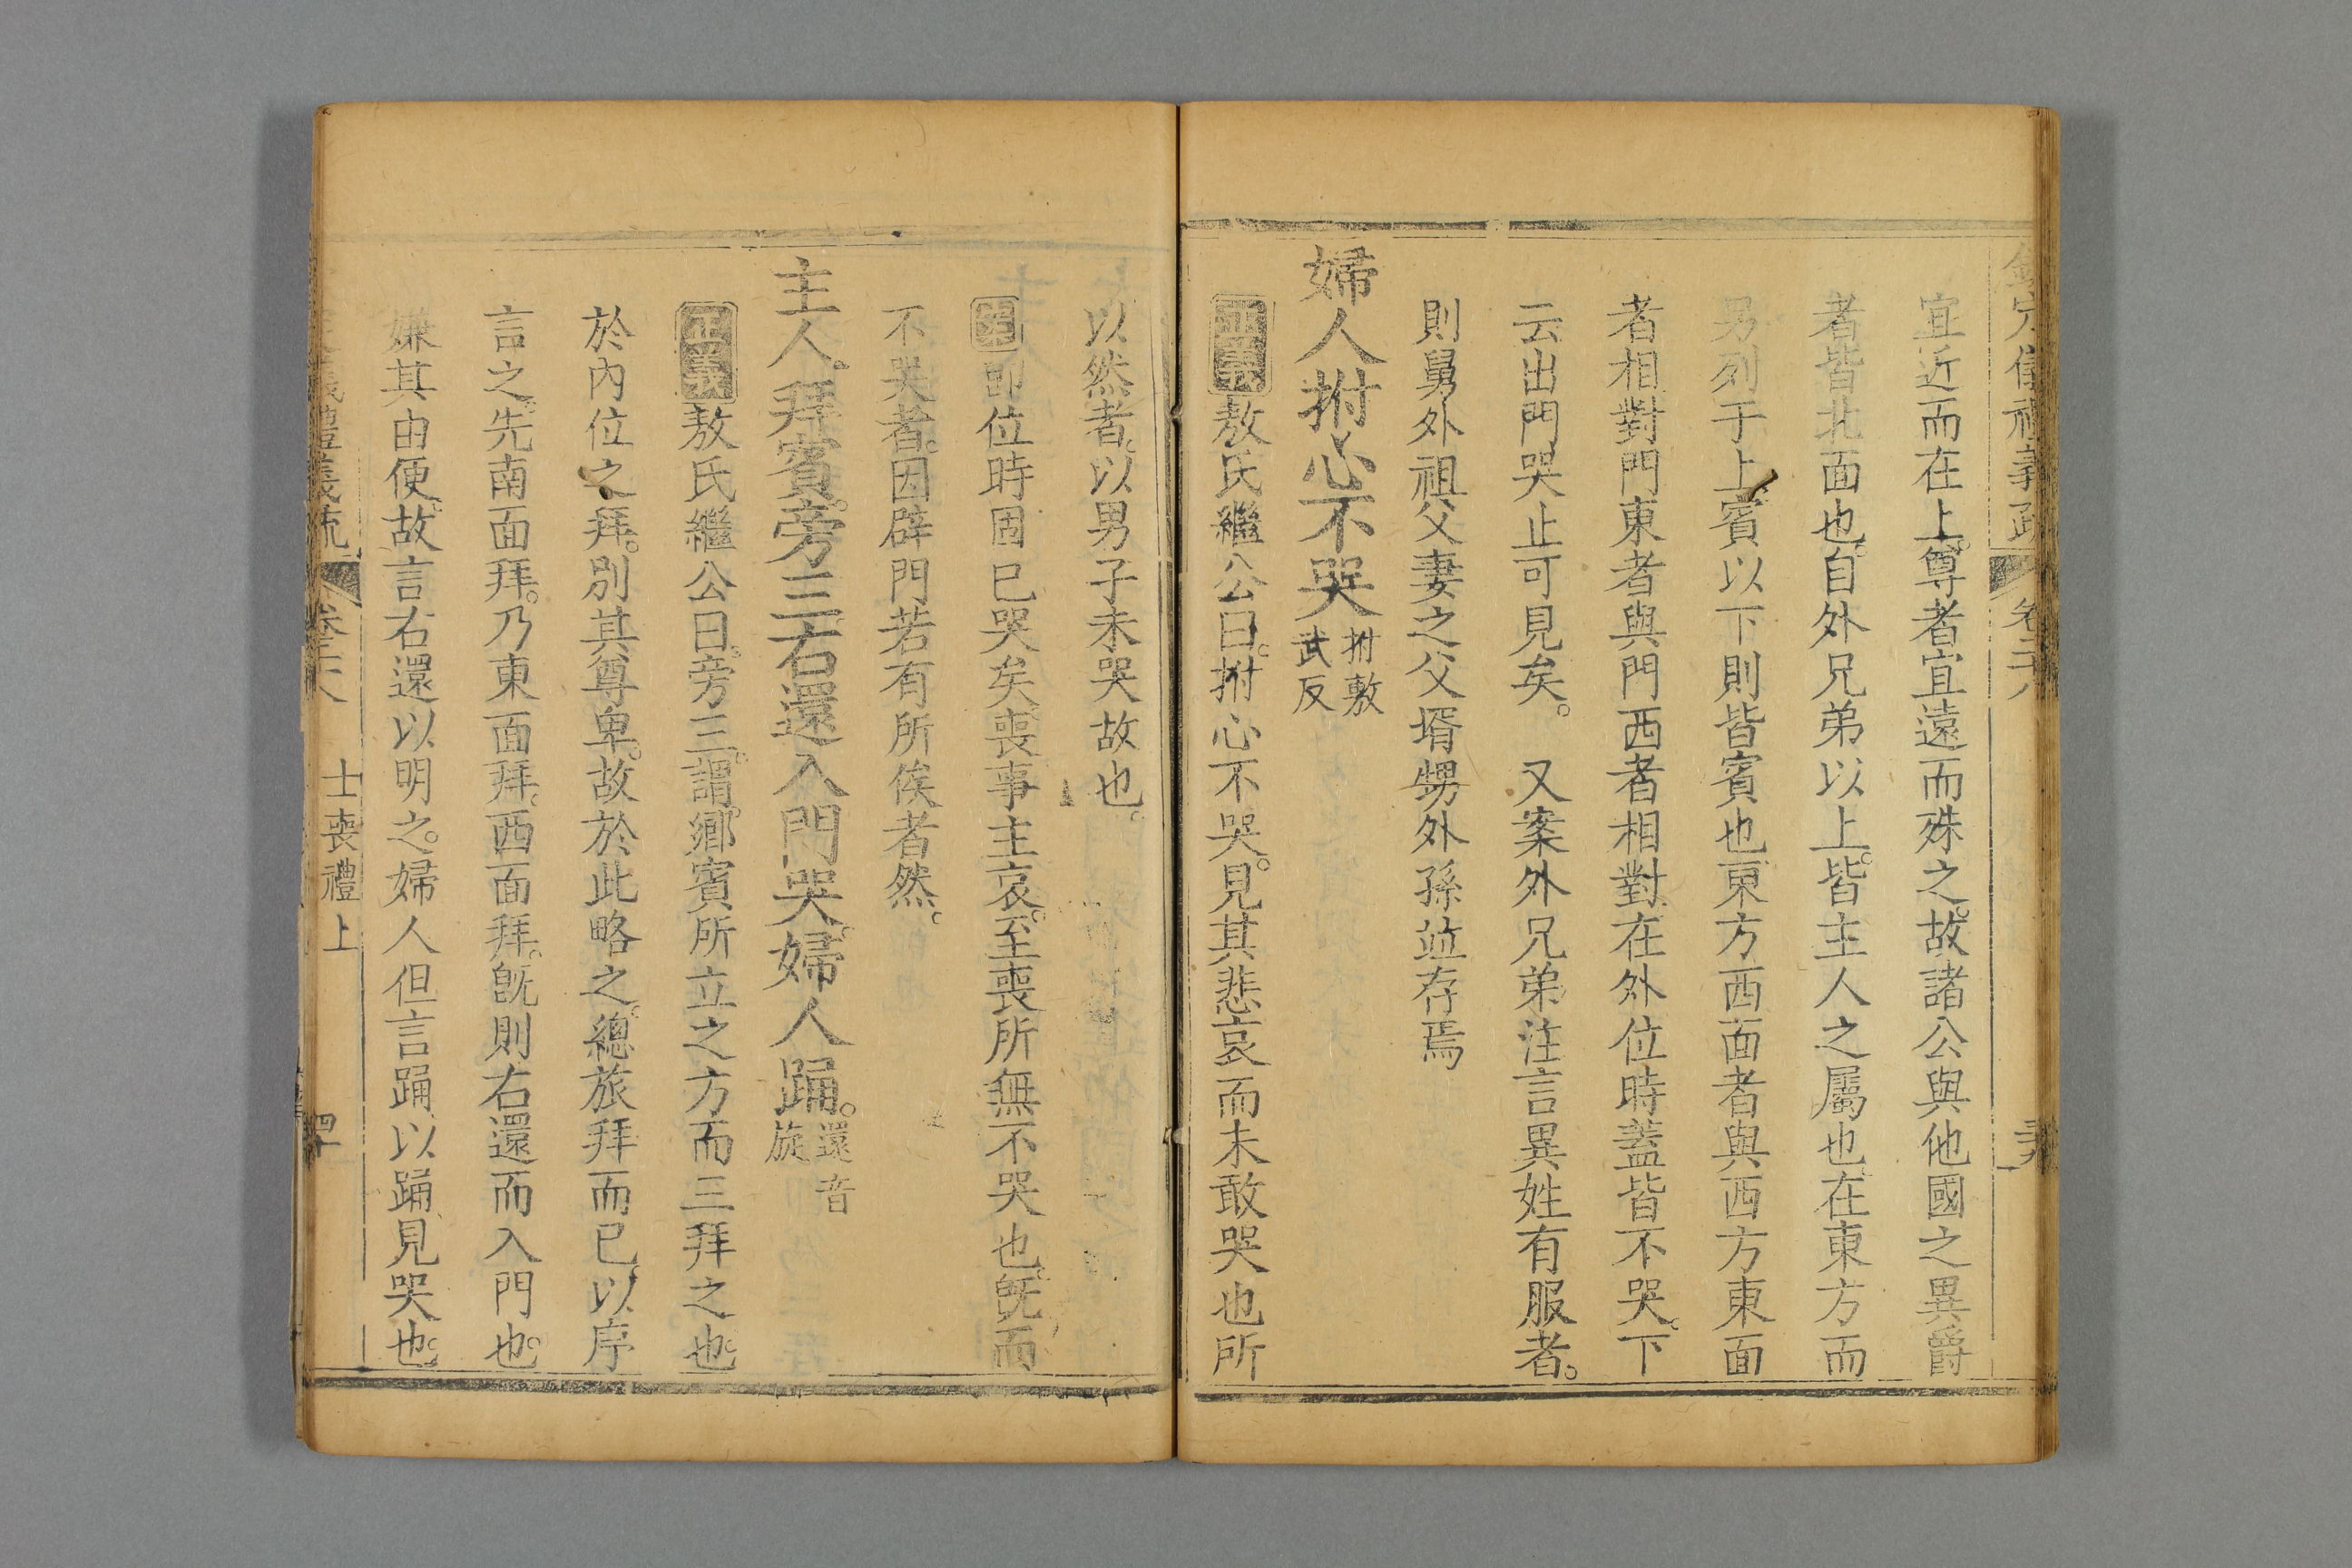 欽定儀禮義疏 卷二十八
宜近而在上。尊者宜遠而殊之。故諸公與他國之異爵
者皆北面也。自外兄弟以上。皆主人之屬也。在東方而
另列于上。賓以下則皆賓也。東方西面者與西方東面
者相對。門東者與門西者相對。在外位時蓋皆不哭。下
云出門哭止可見矣。　又案外兄弟注言異姓有服者。
則舅外祖父妻之父壻甥外孫竝存焉
婦人拊心不哭 拊敷武反
正義敖氏繼公曰。拊心不哭。見其悲哀而未敢哭也所
以然者。以男子未哭故也。
即位時固已哭矣。喪事主哀。至喪所無不哭也。旣而
不哭者。因辟門若有所俟者然。
主人。拜賓。旁三。右還入門哭。婦人踊。 還音旋
正義敖氏繼公曰。旁三。謂。鄉賓所立之方而三拜之也。
於內位之拜。別其尊卑。故於此略之。總旅拜而已。以序
言之。先南面拜。乃東面拜。西面拜。旣則右還而入門也。
嫌其由便。故言右還以明之。婦人但言踊。以踊見哭也。
定儀禮義疏 卷二十八 士喪禮上